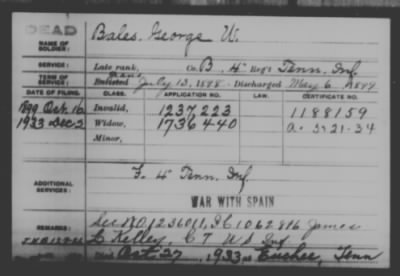 DEAD
NAME OF SOLDIER: Bales, George W.
SERVICE: Late rank, Co. B, 4" Reg't Tenn. Inf.
TERM OF SERVICE: Enlisted July 13, 1898 Discharged May 6 1899
DATE OF FILING. CLASS. APPLICATION NO. LAW. CERTIFICATE NO.
1899 Oct. 16 Invalid, 1237223 1188159
1933 Dec 2 Widow, 1736440 a. 3-21-34
Minor,
ADDITIONAL SERVICES: F. 4" Tenn. Inf.
WAR WITH SPAIN
REMARKS: See 1062816 James
Kelley, C 7 U S Inf
Oct. 27, 1933 at Euchee, Tenn